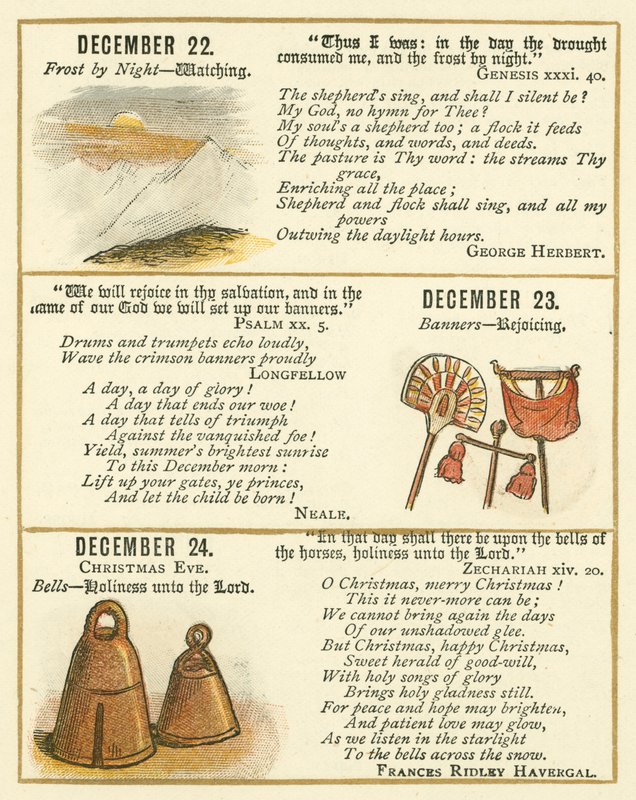 DECEMBER 22.
Frost by Night—Watching.
"Thus I was: in the day the drought
consumed me, and the frost by night."
GENESIS xxxi. 40.
The shepherds sing, and shall I silent be?
My God, no hymn for Thee?
My soul's a shepherd too; a flock it feeds
Of thoughts, and words, and deeds.
The pasture is Thy word: the streams Thy
grace,
Enriching all the place;
Shepherd and flock shall sing, and all my
powers
Outwing the daylight hours.
GEORGE HERBERT.
"We will rejoice in thy salvation, and in the
name of our God we will set up our banners."
PSALM xx. 5.
Drums and trumpets echo loudly,
Wave the crimson banners proudly
LONGFELLOW
A day, a day of glory!
A day that ends our woe!
A day that tells of triumph
Against the vanquished foe!
Yield, summer's brightest sunrise
To this December morn:
Lift up your gates, ye princes,
And let the child be born!
NEALE.
DECEMBER 23.
Banners—Rejoicing.
DECEMBER 24.
CHRISTMAS EVE.
Bells—Holiness unto the Lord.
"In that day shall there be upon the bells of
the horses, holiness unto the Lord."
ZECHARIAH xiv. 20.
O Christmas, merry Christmas!
This it never-more can be;
We cannot bring again the days
Of our unshadowed glee.
But Christmas, happy Christmas,
Sweet herald of good-will,
With holy songs of glory
Brings holy gladness still.
For peace and hope may brighten,
And patient love may glow,
As we listen in the starlight
To the bells across the snow.
FRANCES RIDLEY HAVERGAL.